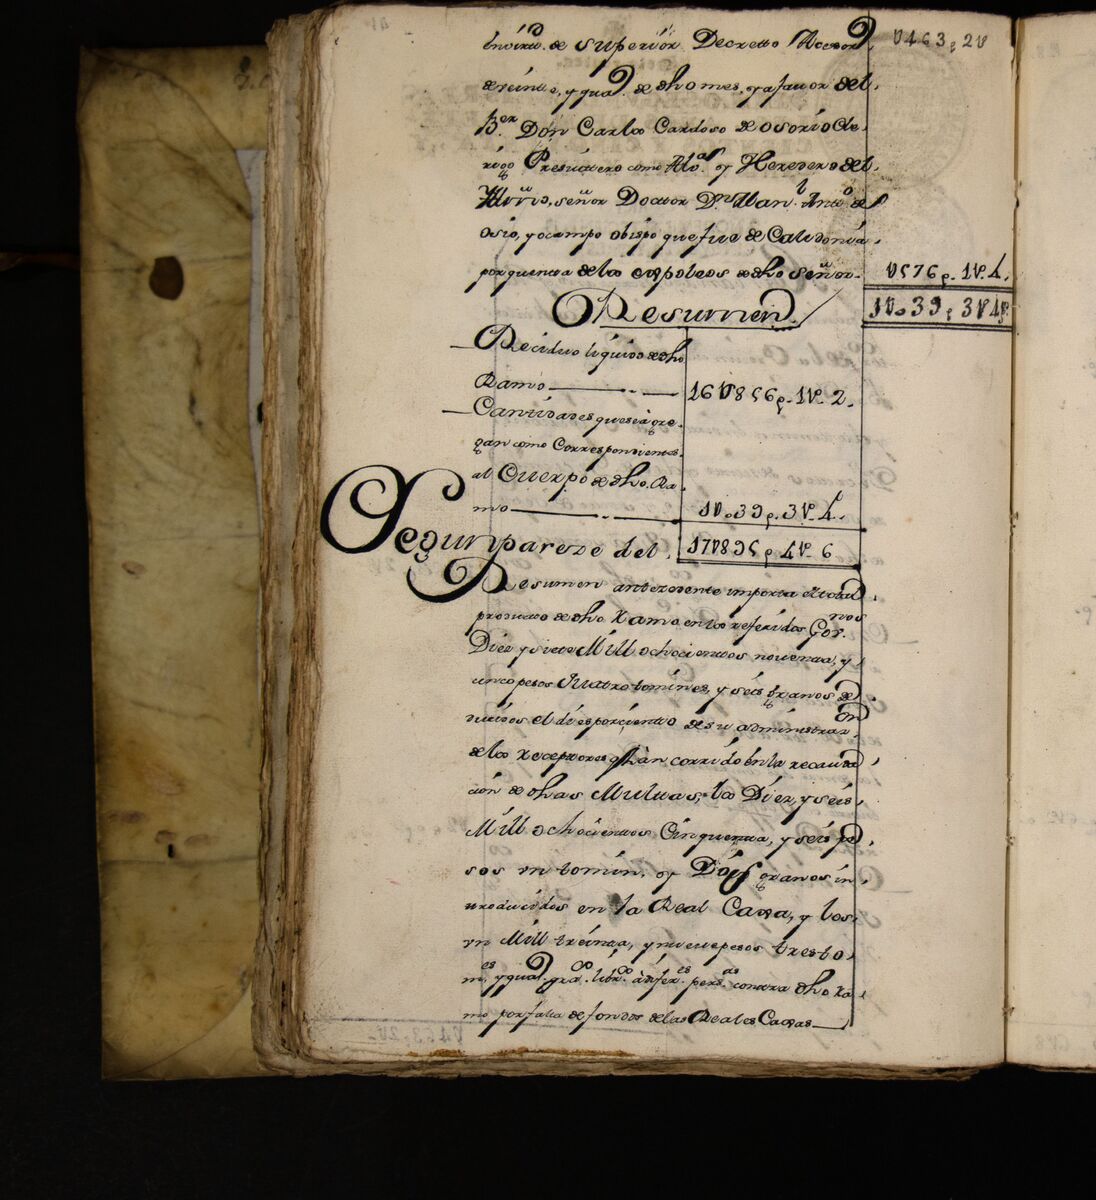 En virtd de Superiór Decretto Acesord. U463p 2U
de veinte, y quad. de dho mes, y a favor del
Br. Don Carlos Cardoso de osorio Cle-
rigo Presvitero como Alvas y Heredero del
señor Doctor Dn Manl Anto de
osio, y ocampo obispo que fue de Calidonia
por quenta de los espoleos de dho Señor. U576p. 1U. 4.
1U.039p 3U 4gs
Resumen
Recivio liquido de dho
Ramo 16U856p. 1U. 2.
Cantidades que se agre-
gan como Correspondientes
al Cuerpo de dho. Ra-
mo 1U.039p. 3U. 4
Segun pareze del 17U895p 4U. 6
Resumen antezedente importa el total
producto de dho Ramo en los referidos Govnos
Diez y siete Mill ochocientos noventa, y
cinco pesos quatro tomines, y seis granos de
ducidos el diez por ciento de su administraon
de los rezeptores q han corrido en la recauda
cion de dhas Multas, los Diez, y seis
Mill ochocientos Cinquenta, y seis pe
sos un tomin, y Dos granos in
troducidos en la Real Caxa, y los
un Mill treinta, y nueve pesos tres to
mes, y quad. gras. librdos à difers. persas contra dho Ra
mo por falta de fondos de las Reales Caxas